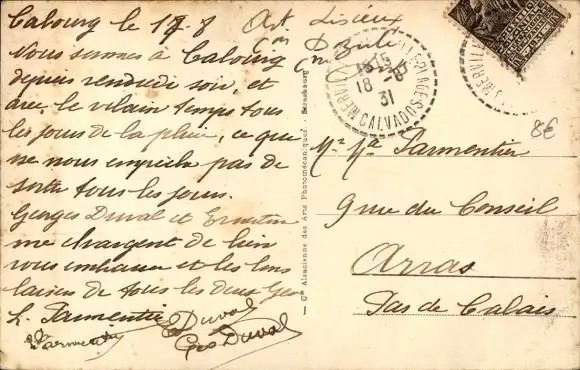 Cabourg le 17-8
Vous sommes à Cabourg
depuis vendredi soir, et
avec le vilain temps tous
les jours de la pluie, ce que
ne nous empêche pas de
sortir tous les jours.
Georges Duval et Ernestine
me chargent de bien
vous embrasser et les
de tous les deux Geo
L. Parmentier
Parmentier
E Duval
Geo Duval
Lisieux
18 -8
31
CALVADOS
Cie Alsacienne des Arts Photomécaniques, Strasbourg
8€
Mr Me Parmentier
9 rue du Conseil
Arras
Pas de Calais